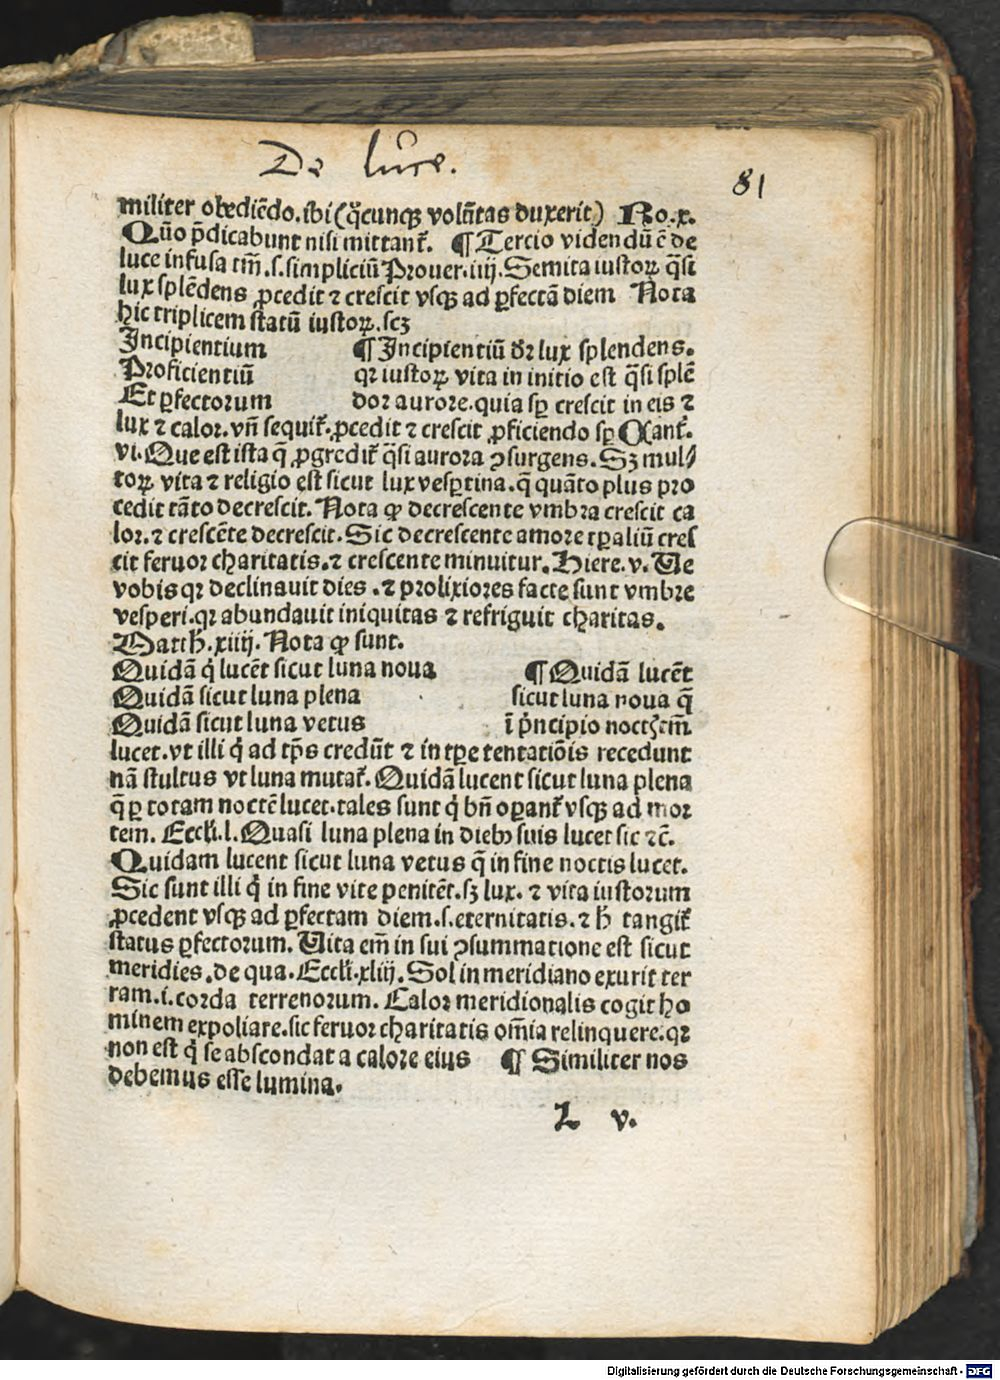 De luce.
81
militer obediēdo. ibi (q̄cunq; volūtas duxerit) Ro.x.
Quō p̄dicabunt nisi mittant̄. ¶ Tercio videndū ē de
luce infusa tm̄.s.simpliciū Prouer.iiij. Semita iustoꝝ q̄si
lux splēdens ꝓcedit ⁊ crescit vsq; ad ꝑfectā diem Nota
hic triplicem statū iustoꝝ.scꝫ
Incipientium ¶ Incipientiū dr̄ lux splendens.
Proficientiū qꝛ iustoꝝ vita in initio est q̄si splē
Et ꝑfectorum dor aurore.quia sꝑ crescit in eis ⁊
lux ⁊ calor. vn̄ sequit̄.ꝓcedit ⁊ crescit ꝓficiendo sꝑ Cant̄.
vi. Que est ista q̄ ꝓgredit̄ q̄si aurora ꝯsurgens. Sꝫ mul⸗
toꝝ vita ⁊ religio est sicut lux vesꝑtina.q̄ quāto plus pro
cedit tāto decrescit. Nota ꝙ decrescente vmbra crescit ca
lor.⁊ crescēte decrescit. Sic decrescente amore tꝑaliū cres
cit feruor charitatis.⁊ crescente minuitur. Hiere.v. Ue
vobis qꝛ declinauit dies .⁊ prolixiores facte sunt vmbre
vesperi.qꝛ abundauit iniquitas ⁊ refriguit charitas.
Matth̄.xiiij. Nota ꝙ sunt.
Quidā q̇ lucēt sicut luna noua ¶ Quidā lucēt
Quidā sicut luna plena sicut luna noua q̄
Quidā sicut luna vetus ī pⁱncipio noctꝭ tm̄
lucet.vt illi q̇ ad tp̄s credūt ⁊ in tꝑe tentatiōis recedunt
nā stultus vt luna mutat̄. Quidā lucent sicut luna plena
q̄ ꝑ totam noctē lucet.tales sunt q̇ bn̄ oꝑant̄ vsq; ad mor
tem. Ecclī.l. Quasi luna plena in dieb; suis lucet sic ⁊c̄.
Quidam lucent sicut luna vetus q̄ in fine noctis lucet.
Sic sunt illi q̇ in fine vite penitēt.sꝫ lux.⁊ vita iustorum
ꝓcedent vsq; ad ꝑfectam diem.s.eternitatis.⁊ h̄ tangit̄
status ꝑfectorum. Uita em̄ in sui ꝯsummatione est sicut
meridies.de qua. Ecclī.xliij. Sol in meridiano exurit ter
ram.i.corda terrenorum. Calor meridionalis cogit ho
minem expoliare.sic feruor charitatis om̄ia relinquere.qꝛ
non est q̇ se abscondat a calore eius ¶ Similiter nos
debemus esse lumina.
L v.
Digitalisierung gefördert durch die Deutsche Forschungsgemeinschaft - DFG